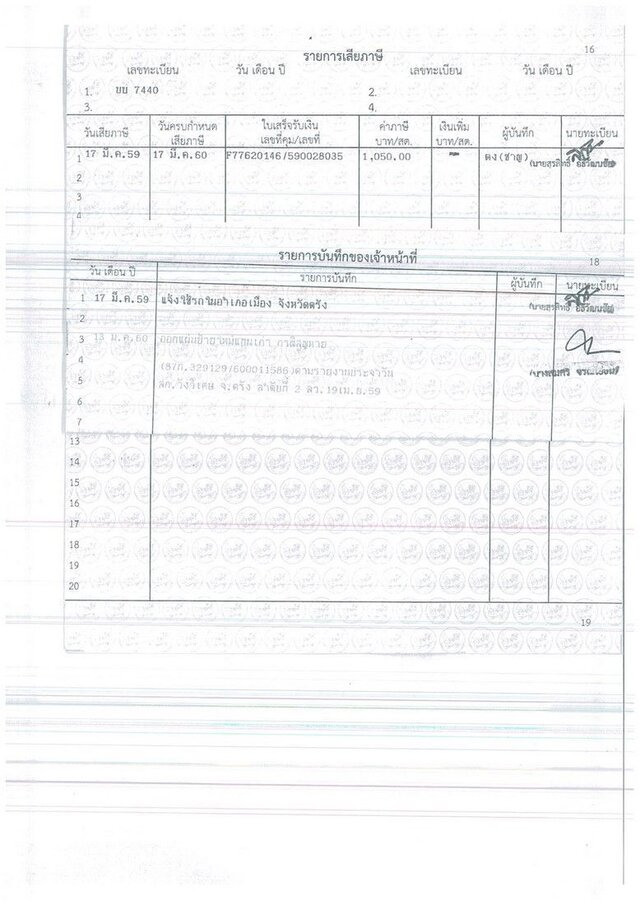 16
รายการเสียภาษี
เลขทะเบียน วัน เดือน ปี เลขทะเบียน วัน เดือน ปี
1. บบ 7440 2.
3. 4.
วันเสียภาษี วันครบกำหนดเสียภาษี ใบเสร็จรับเงิน เลขที่คุม/เลขที่ ค่าภาษี บาท/สต. เงินเพิ่ม บาท/สต. ผู้บันทึก นายทะเบียน
1 17 มี.ค.59 17 มี.ค.60 F77620146/590028035 1,050.00 -
2
3
4
รายการบันทึกของเจ้าหน้าที่ 18
วัน เดือน ปี รายการบันทึก ผู้บันทึก นายทะเบียน
1 17 มี.ค.59 แจ้งใช้รถ เมือง จังหวัดตรัง
2
3 13 มี.ค.60
4 (87ก.329129/600011586)ตามรายงานประจำวัน
5 สภ.วังวิเศษ จ.ตรัง ลำดับที่ 2 ลว.19เม.ย.59
6
7
13
14
15
16
17
18
19
20
19